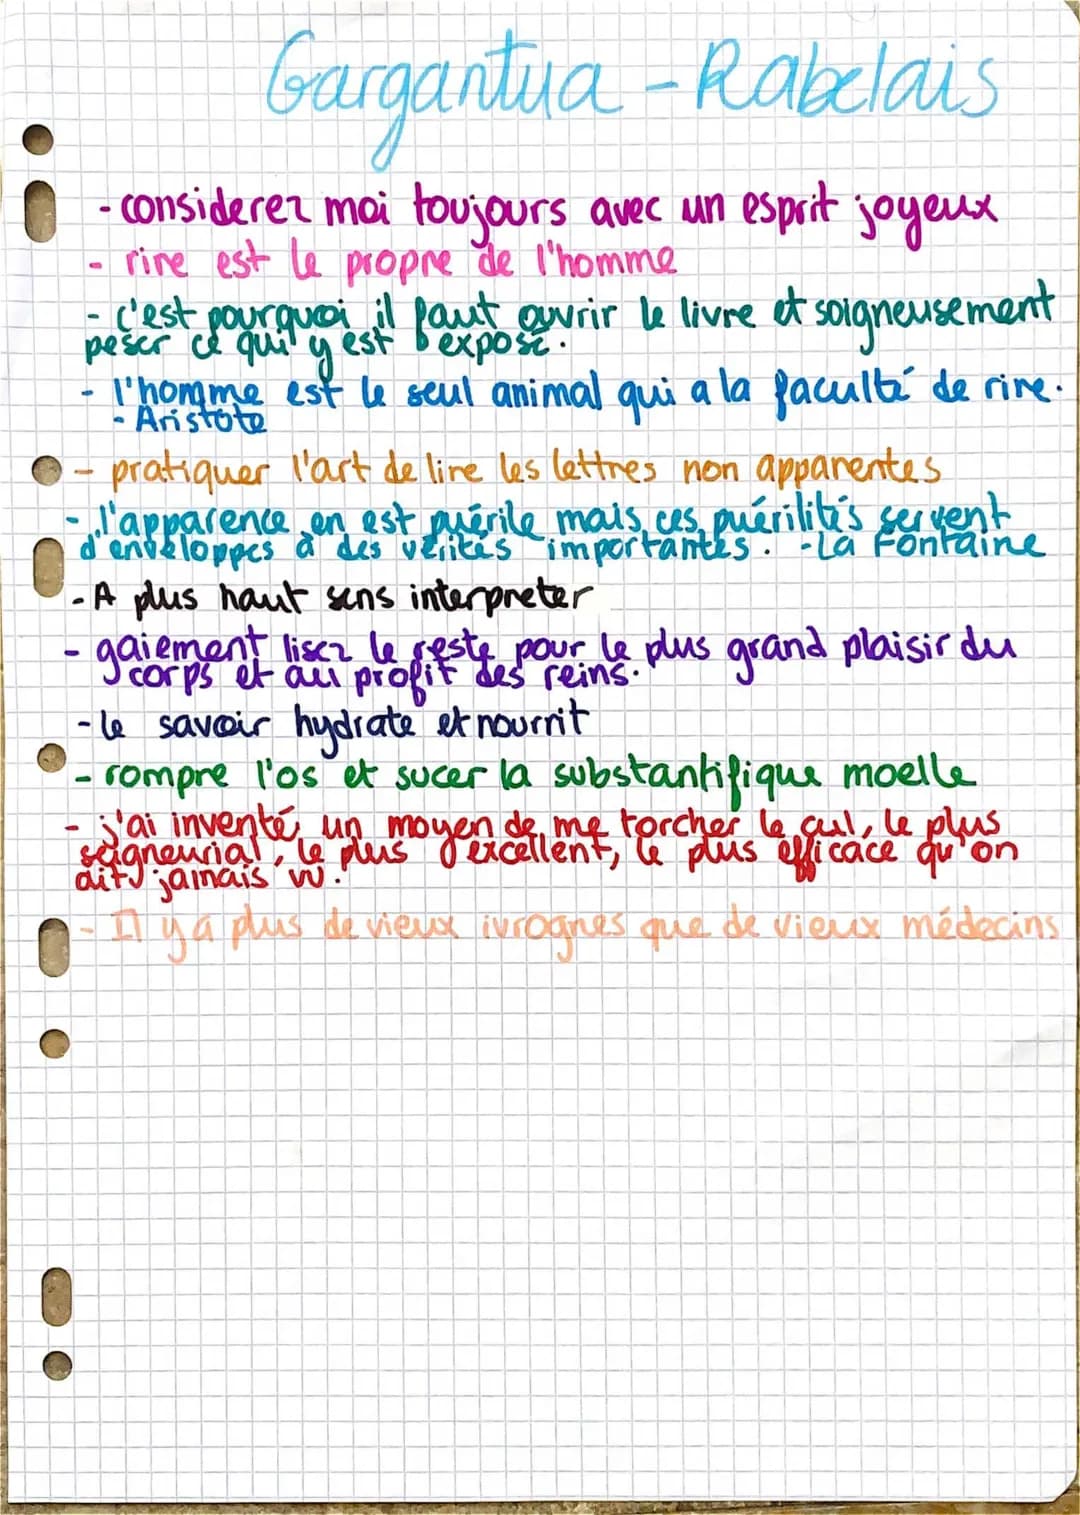 Gargantua - Rabelais
- considerez moi toujours avec un esprit joyeux
- rire est le propre de l'homme
- c'est pourquoi il faut ouvrir le livre et soigneusement
peser ce qui y est exposé.
- l'homme est le seul animal qui a la faculté de rire.
- Aristote
- pratiquer l'art de lire les lettres non apparentes
- l'apparence en est puérile mais ces puérilités servent
d'enveloppes à des vérités importantes. - La Fontaine
- A plus haut sens interpreter
- gaiement lisez le reste pour le plus grand plaisir du
corps et au profit des reins.
- le savoir hydrate et nourrit
- rompre l'os et sucer la substantifique moelle
- j'ai inventé un moyen de me torcher le cul, le plus
seigneurial, le plus excellent, le plus efficace qu'on
ait jamais vu.
- Il y a plus de vieux ivrognes que de vieux médecins